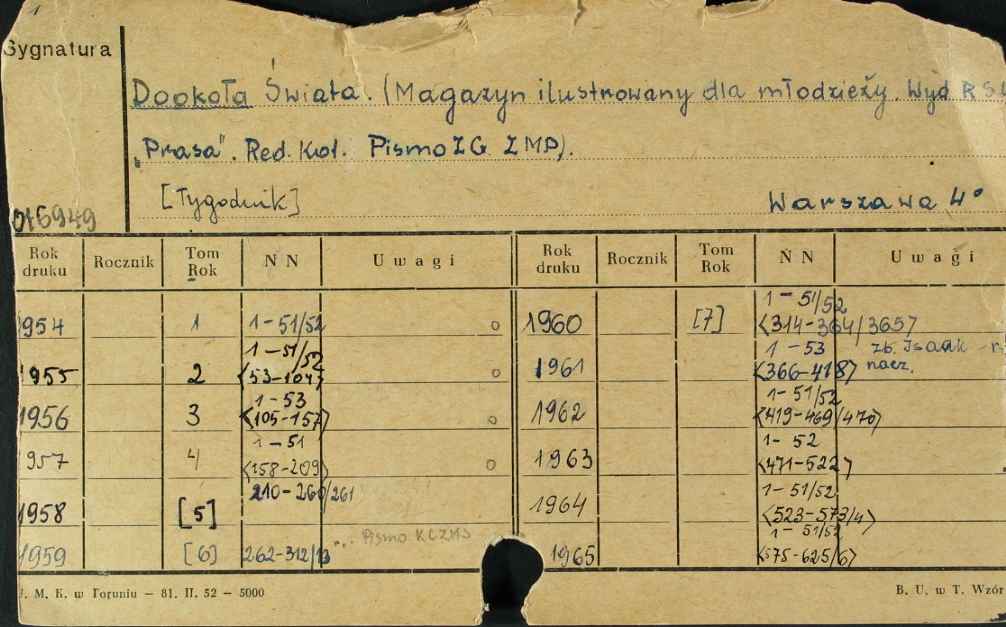 Sygnatura
Dookoła Świata. (Magazyn ilustrowany dla młodzieży. Wyd RS
„Prasa". Red. Kol. Pismo ZG ZMP).
[Tygodnik] Warszawa 4°
016949
Rok druku Rocznik Tom Rok N N Uwagi Rok druku Rocznik Tom Rok N N Uwagi
1954 1 1-51/52 o 1960 [7] 1-51/52 <314-364/365>
1955 2 1-51/52 <53-104> o 1961 1-53 <366-418> zb. Isaak nacz.
1956 3 1-53 <105-157> o 1962 1-51/52 <419-469/470>
1957 4 1-51 <158-209> o 1963 1-52 <471-522>
1958 [5] 210-260/261 1964 1-51/52 <523-573/4>
1959 [6] 262-312/13 Pismo KCZMS 1965 1-51/52 <575-625/6>
J. M. K. w Toruniu — 81. II. 52 — 5000 B. U. w T. Wzór